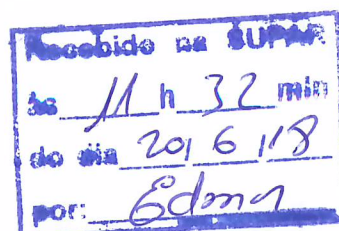 Recebido na SUPAR
às 11 h 32 min
do dia 20/6/18
por: Edmar